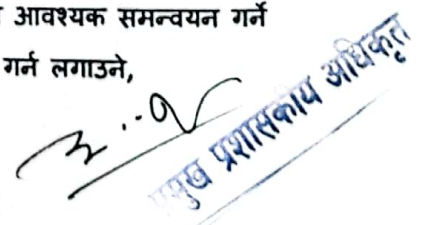 आवश्यक समन्वयन गर्ने
गर्न लगाउने,
प्रमुख प्रशासकीय अधिकृत